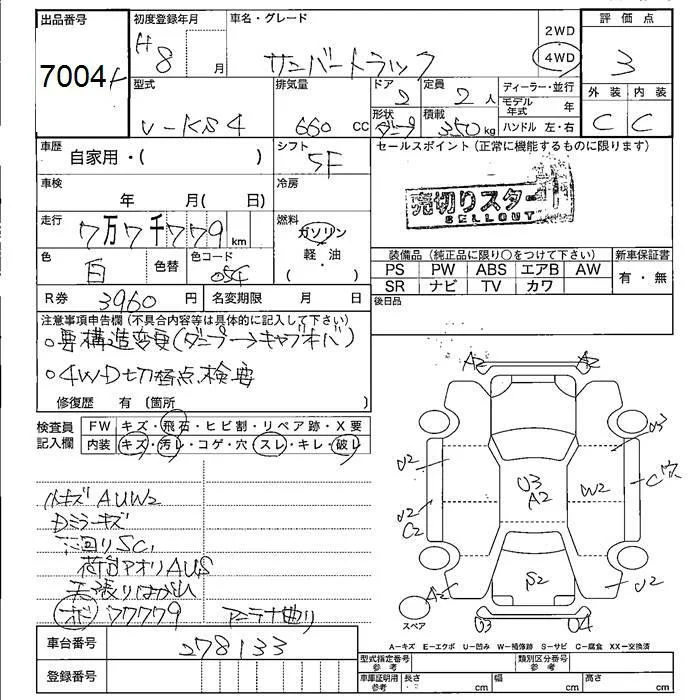 出品番号 初度登録年月 車名・グレード 2WD 評価点
7004 H8 月 サンバートラック 4WD 3
型式 排気量 ドア 定員 ディーラー・並行 外装 内装
2 2人 モデル年式 年
V-KS4 660 cc 形状 ダンプ 積載 350kg ハンドル 左・右 C C
車歴 自家用・( ) シフト 5F セールスポイント(正常に機能するものに限ります)
車検 年 月( 日) 冷房 売切りスター
SELLOUT
走行 7万7千779km 燃料 ガソリン
軽・油
( )
色 白 色替 色コード 054
装備品(純正品に限り○をつけて下さい) 新車保証書
PS PW ABS エアB AW 有・無
SR ナビ TV カワ
R券 3960円 名変期限 月 日 後日品
注意事項申告欄(不具合内容等は具体的に記入して下さい)
○要構造変更(ダンプ→キャブオーバ)
○4W-D切替点検要
修復歴 有(箇所 )
検査員 FW キズ・飛石・ヒビ割・リペア跡・X要
記入欄 内装 キズ・汚レ・コゲ・穴 スレ・キレ・破レ
A2 A2
U3
U2 U3 C穴
A2 W2
U2
C2
小キズAUW2
Dミラーキズ
下回りSC
荷台アオリAUS
天張りはがれ S2 U2
77779 アンテナ曲り U3 U4
スペア
A=キズ E=エクボ U=凹み W=補修跡 S=サビ C=腐食 XX=交換済
車台番号 278133
型式指定番号 参考 類別区分番号 参考
登録番号 車庫証明用 参考 長さ cm 幅 cm 高さ cm